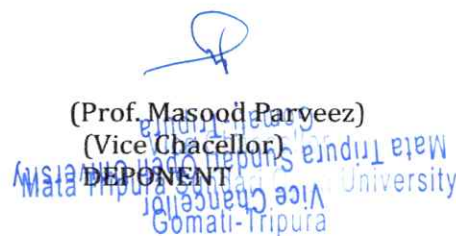 (Prof. Masood Parveez)
(Vice Chacellor)
DEPONENT
Vice Chancellor
Mata Tripura Sundari Open University
Gomati-Tripura